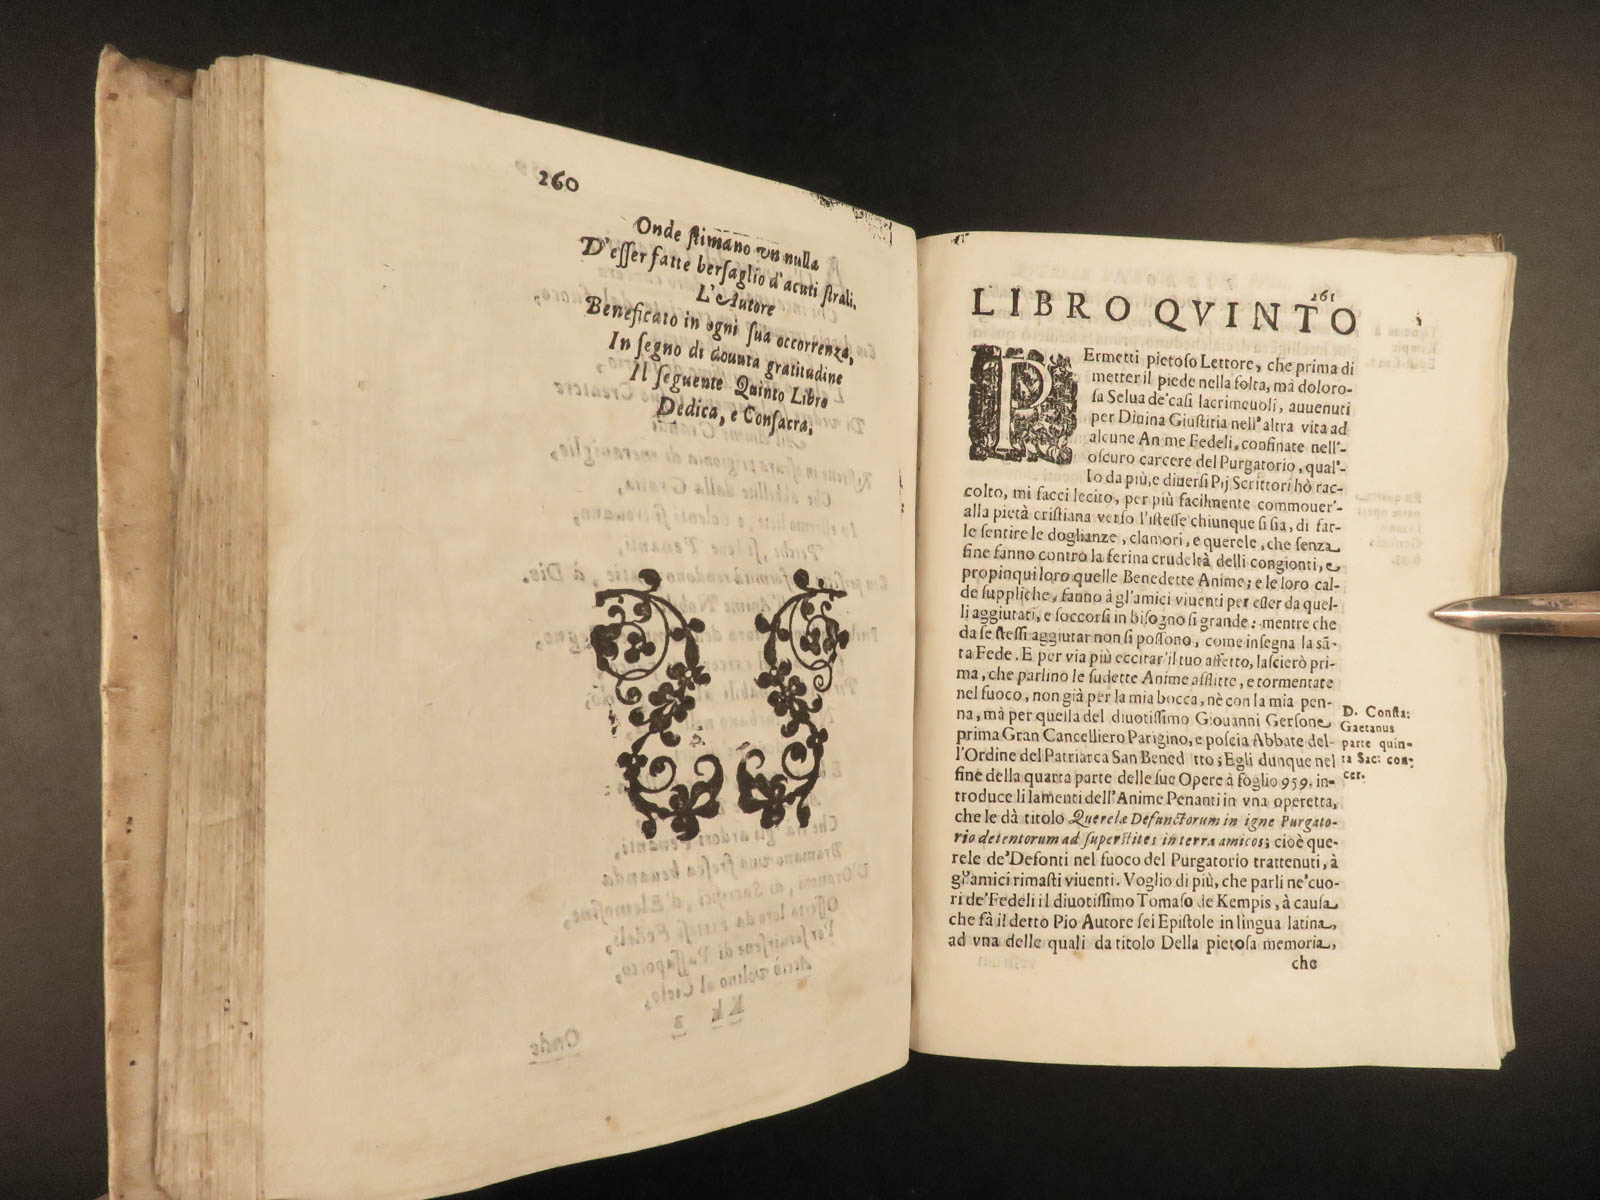 260
Onde stimano vn nulla
D'esser fatte bersaglio d'acuti strali.
L'Autore
Beneficato in ogni sua occorrenza,
In segno di douuta gratitudine
Il seguente Quinto Libro
Dedica, e Consacra,
261
LIBRO QVINTO
PErmetti pietoso Lettore, che prima di
metter il piede nella folta, mà doloro-
sa Selua de'casi lacrimeuoli, auuenuti
per Diuina Giustitia nell'altra vita ad
alcune An me Fedeli, confinate nell'-
oscuro carcere del Purgatorio, qual'-
Io da più, e diuersi Pij Scrittori hò rac-
colto, mi facci lecito, per più facilmente commouer'-
alla pietà cristiana verso l'istesse chiunque si sia, di far-
le sentire le doglianze, clamori, e querele, che senza
fine fanno contro la ferina crudeltà delli congionti, e
propinqui loro quelle Benedette Anime; e le loro cal-
de suppliche, fanno à gl'amici viuenti per esser da quel-
li aggiutati, e soccorsi in bisogno si grande: mentre che
da se stessi aggiutar non si possono, come insegna la sã-
ta Fede. E per via più eccitar'il tuo affetto, lascierò pri-
ma, che parlino le sudette Anime afflitte, e tormentate
nel fuoco, non già per la mia bocca, nè con la mia pen-
na, mà per quella del diuotissimo Giouanni Gersone
prima Gran Cancelliero Parigino, e poscia Abbate del-
l'Ordine del Patriarca San Bened tto; Egli dunque nel
fine della quarta parte delle sue Opere à foglio 959. in-
troduce li lamenti dell'Anime Penanti in vna operetta,
che le dà titolo Querelæ Defunctorum in igne Purgato-
rio detentorum ad superstites in terra amicos; cioè que-
rele de'Defonti nel fuoco del Purgatorio trattenuti, à
gl'amici rimasti viuenti. Voglio di più, che parli ne'cuo-
ri de'Fedeli il diuotissimo Tomaso de Kempis, à causa
che fà il detto Pio Autore sei Epistole in lingua latina,
ad vna delle quali da titolo Della pietosa memoria,
che
D. Consta:
Gaetanus
parte quin-
ta Sac: con-
cer.